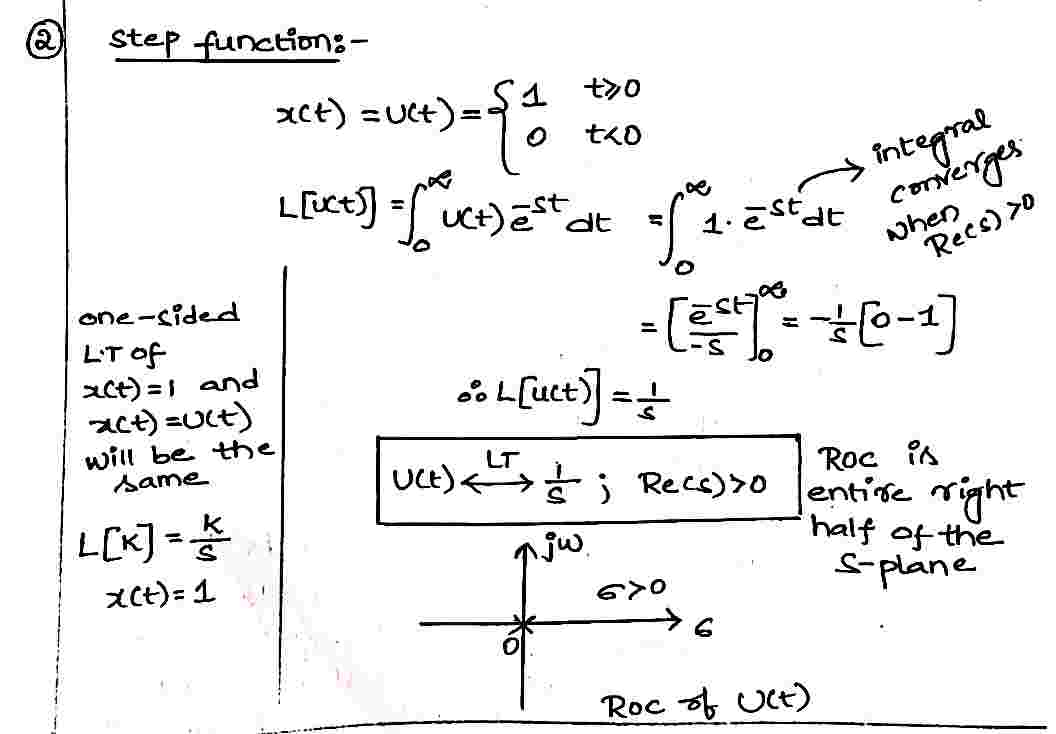 ② step function:-
x(t) = u(t) = { 1 t≥0
0 t<0
L[u(t)] = ∫₀^∞ u(t) e^-st dt = ∫₀^∞ 1. e^-st dt → integral converges when Re(s)>0
= [e^-st / -s]₀^∞ = -1/s [0-1]
∴ L[u(t)] = 1/s
u(t) ←LT→ 1/s ; Re(s)>0
ROC is
entire right
half of the
S-plane
one-sided
L.T of
x(t)=1 and
x(t)=u(t)
will be the
same
L[K] = K/s
x(t)=1
jω
σ>0
σ
0
ROC of u(t)